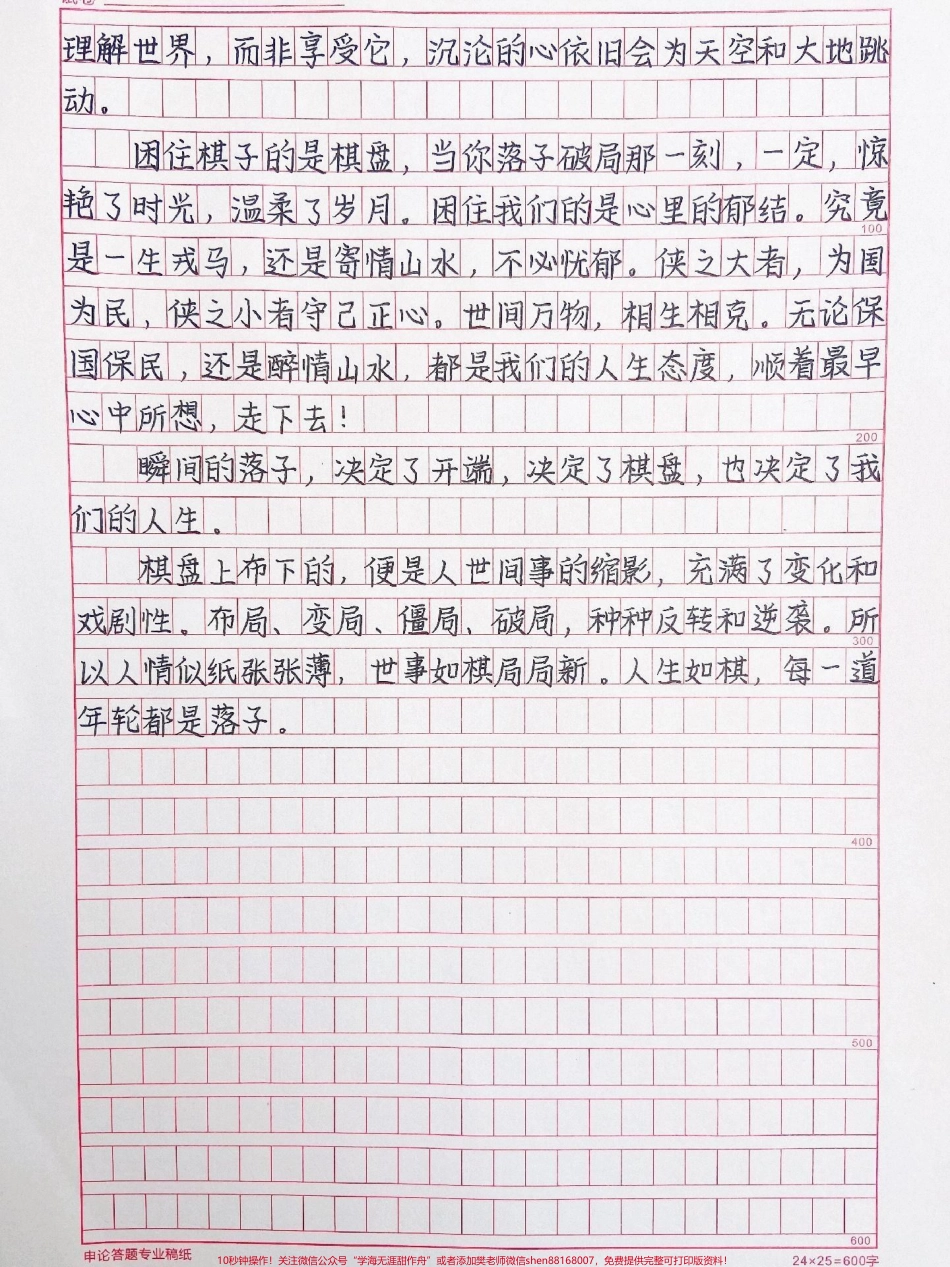 理解世界，而非享受它，沉沦的心依旧会为天空和大地跳
动。
困住棋子的是棋盘，当你落子破局那一刻，一定，惊
艳了时光，温柔了岁月。困住我们的是心里的郁结。究竟
100
是一生戎马，还是寄情山水，不必忧郁。侠之大者，为国
为民，侠之小者守己正心。世间万物，相生相克。无论保
国保民，还是醉情山水，都是我们的人生态度，顺着最早
心中所想，走下去！
200
瞬间的落子，决定了开端，决定了棋盘，也决定了我
们的人生。
棋盘上布下的，便是人世间事的缩影，充满了变化和
戏剧性。布局、变局、僵局、破局，种种反转和逆袭。所
300
以人情似纸张张薄，世事如棋局局新。人生如棋，每一道
年轮都是落子。
400
500
600
申论答题专业稿纸
24×25=600字
10秒钟操作！关注微信公众号“学海无涯甜作舟”或者添加樊老师微信shen88168007，免费提供完整可打印版资料！